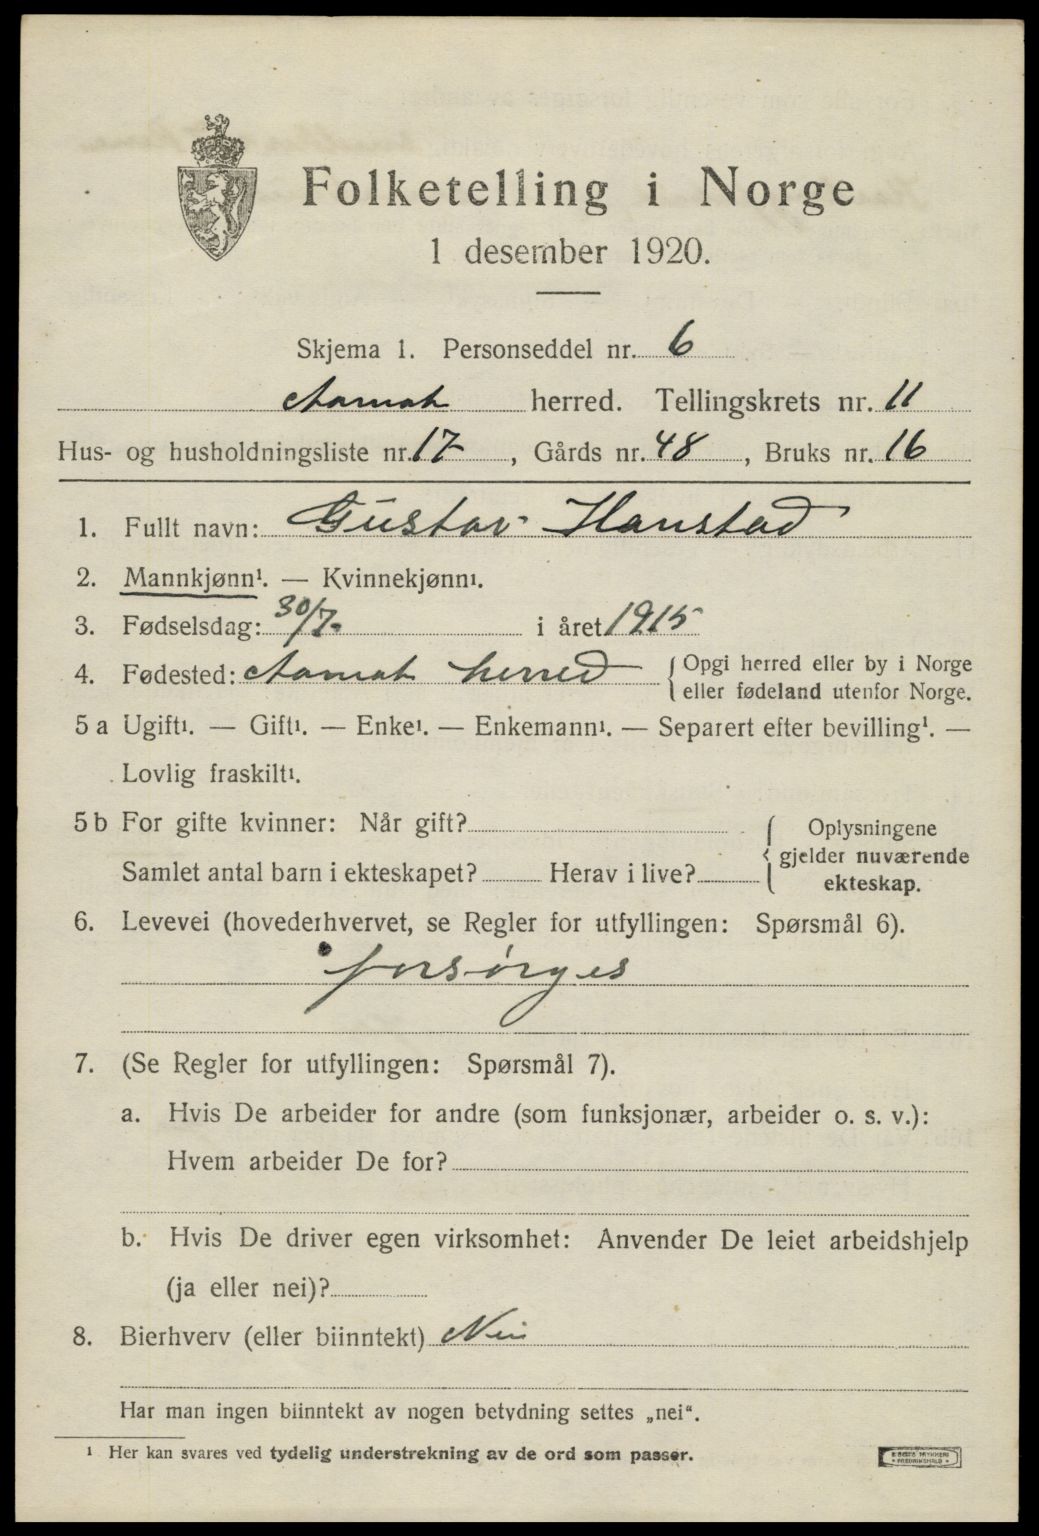 Folketelling i Norge
1 desember 1920.
Skjema 1. Personseddel nr. 6
Aamot herred. Tellingskrets nr. 11
Hus- og husholdningsliste nr. 17, Gårds nr. 48, Bruks nr. 16
1. Fullt navn: Gustav Hanstad
2. Mannkjønn¹. — Kvinnekjønn¹.
3. Fødselsdag: 30/7. i året 1915
4. Fødested: Aamot herred { Opgi herred eller by i Norge
eller fødeland utenfor Norge.
5 a Ugift¹. — Gift¹. — Enke¹. — Enkemann¹. — Separert efter bevilling¹. —
Lovlig fraskilt¹.
5 b For gifte kvinner: Når gift? { Oplysningene
gjelder nuværende
Samlet antal barn i ekteskapet? Herav i live? ekteskap.
6. Levevei (hovederhvervet, se Regler for utfyllingen: Spørsmål 6).
forsørges
7. (Se Regler for utfyllingen: Spørsmål 7).
a. Hvis De arbeider for andre (som funksjonær, arbeider o. s. v.):
Hvem arbeider De for?
b. Hvis De driver egen virksomhet: Anvender De leiet arbeidshjelp
(ja eller nei)?
8. Bierhverv (eller biinntekt) Nei
Har man ingen biinntekt av nogen betydning settes „nei“.
¹ Her kan svares ved tydelig understrekning av de ord som passer.